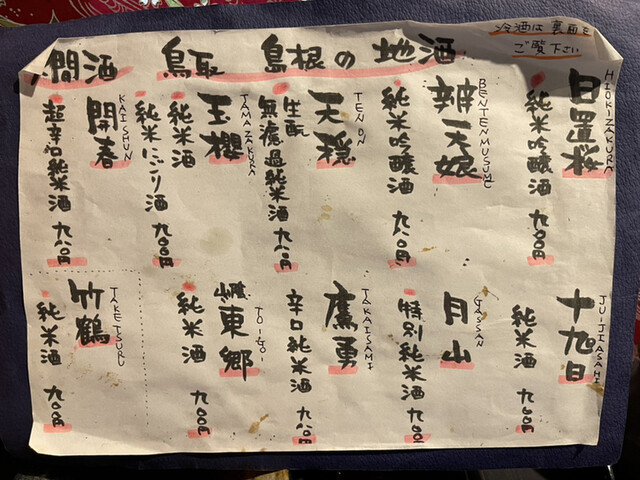 燗酒 鳥取 島根の地酒
冷酒は裏面を
ご覧下さい
日置桜
HIOKIZAKURA
純米吟醸酒 九〇〇円
辨天娘
BENTENMUSUME
純米吟醸酒 九八〇円
天穏
TEN ON
生酛
無濾過純米酒 九八〇円
玉櫻
TAMAZAKURA
純米酒
純米にごり酒 九〇〇円
開春
KAISHUN
超辛口純米酒 九八〇円
十旭日
JUJIASAHI
純米酒 九〇〇円
月山
GASSAN
特別純米酒 九〇〇円
鷹勇
TAKAISAMI
辛口純米酒 九八〇円
東郷
TO-GO-
純米酒 九〇〇円
竹鶴
TAKETSURU
純米酒 九〇〇円